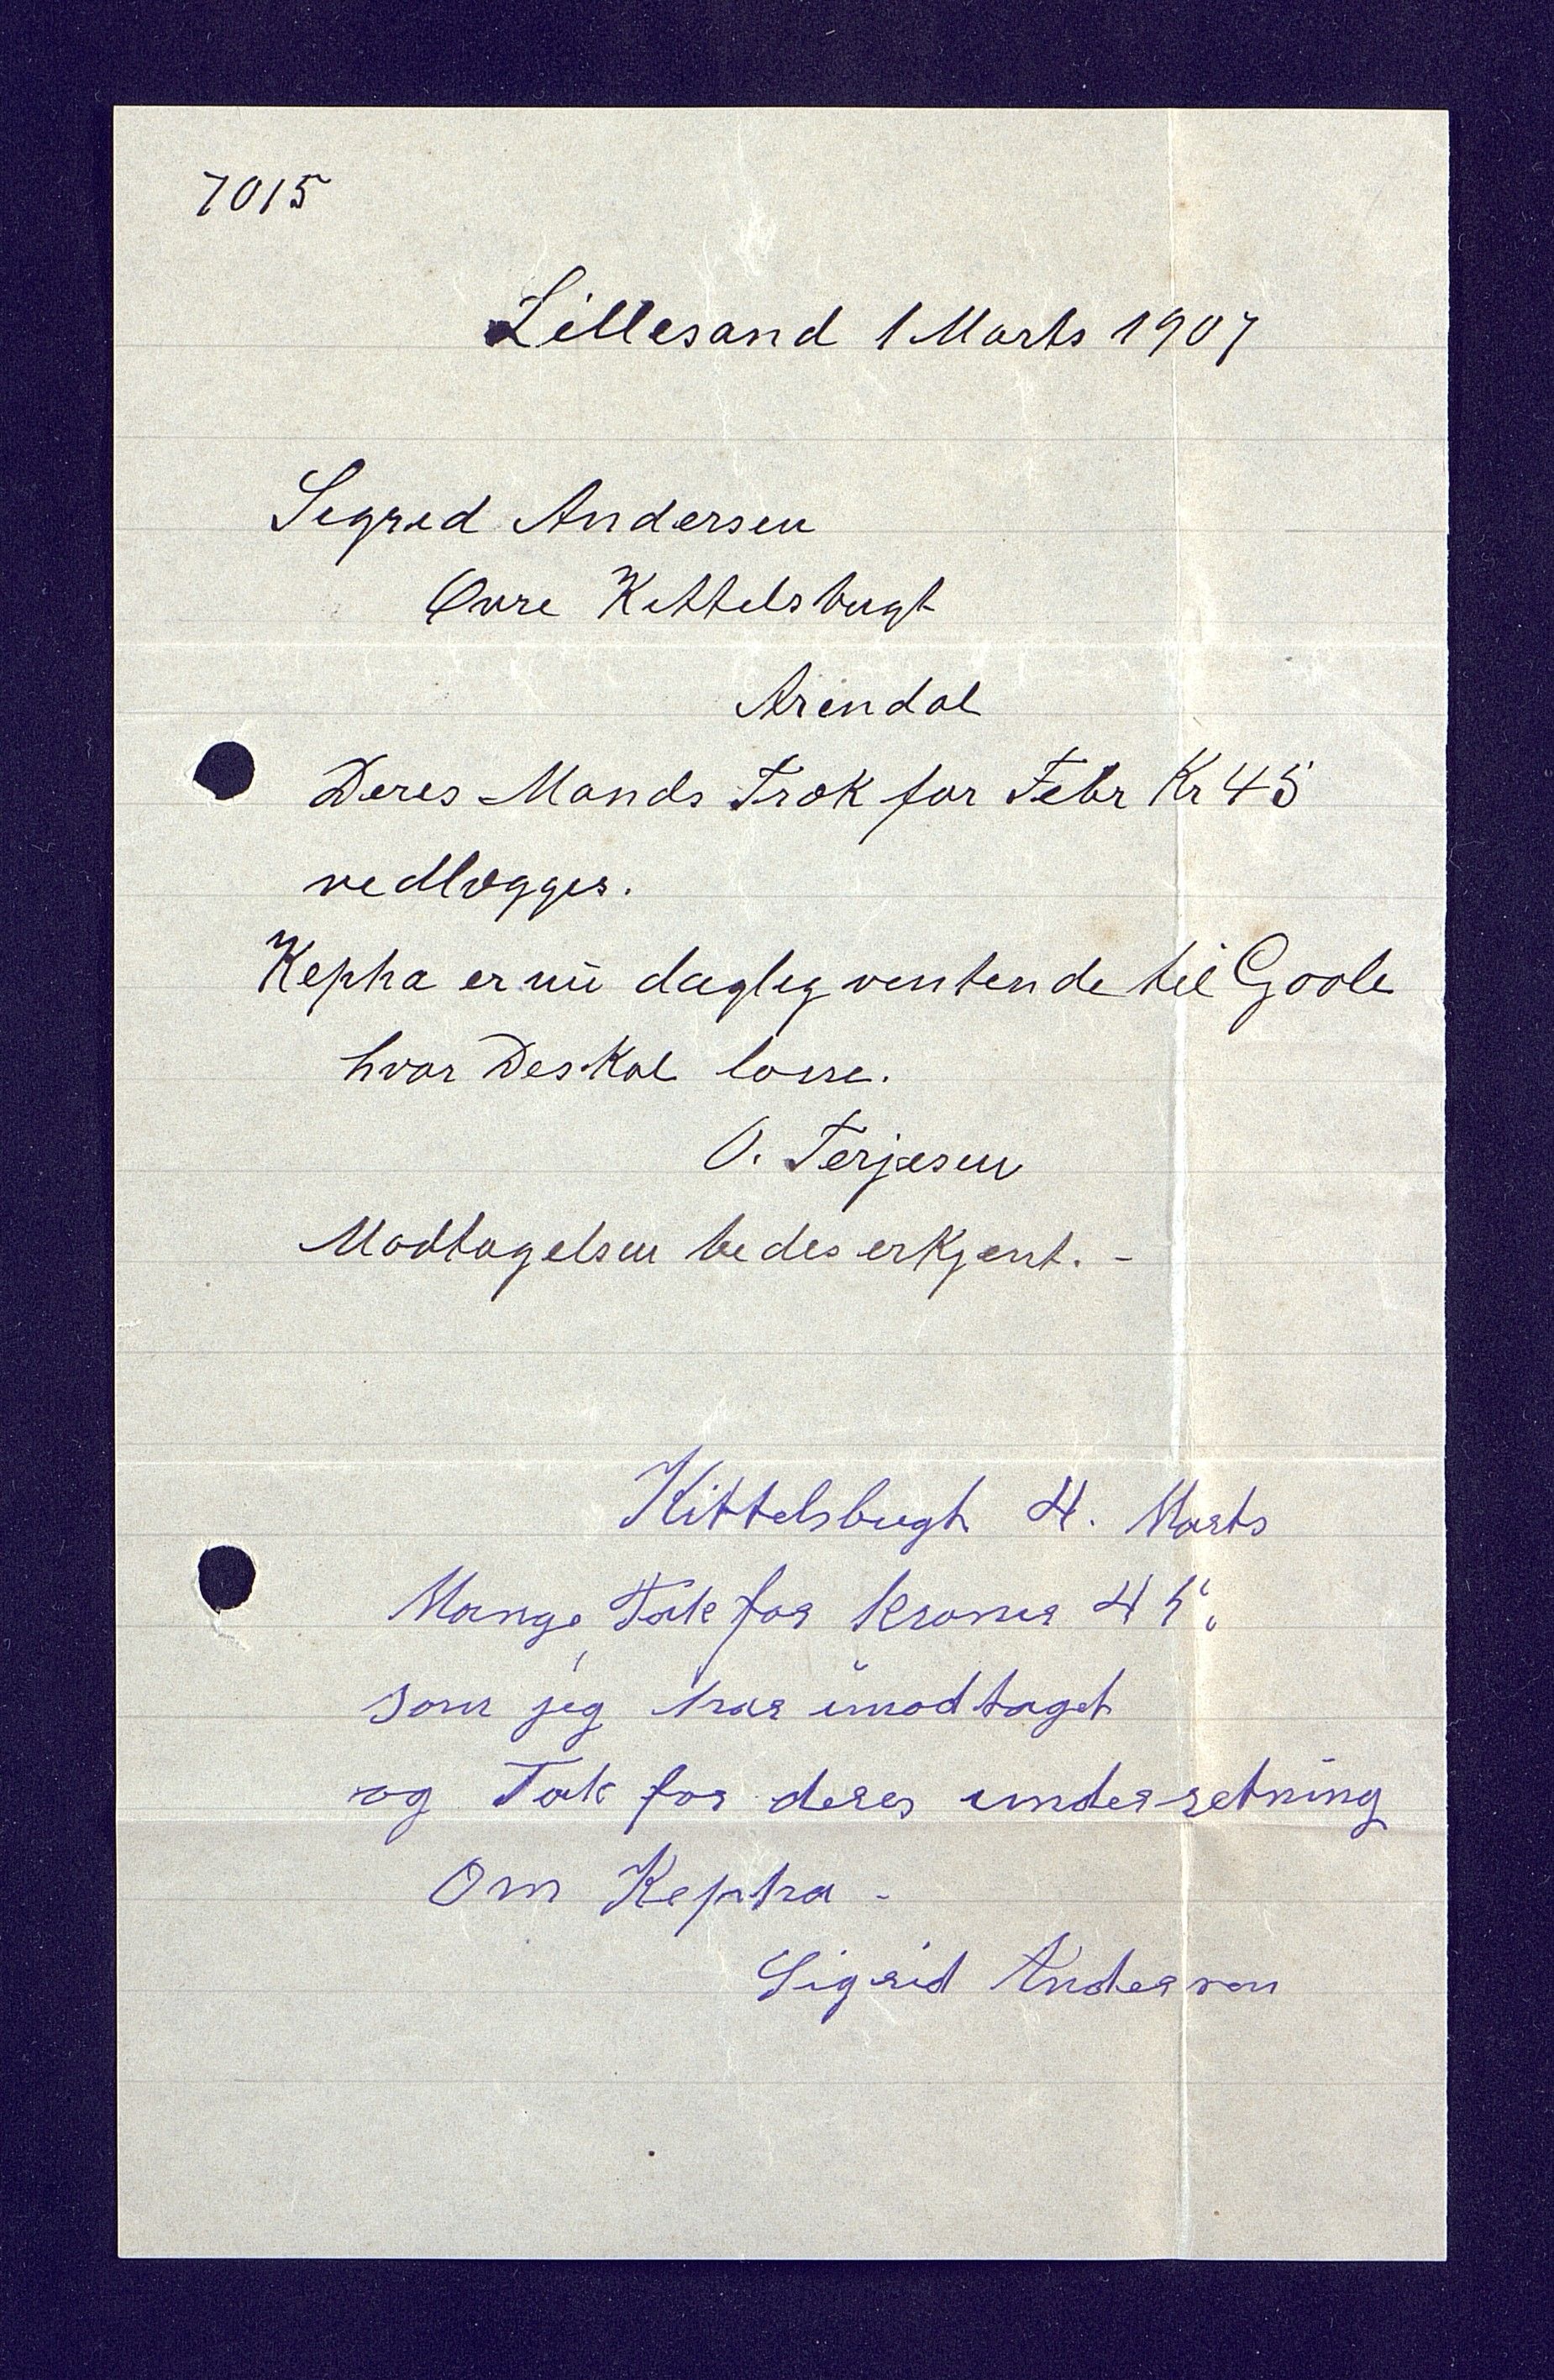 7015
Lillesand 1 Marts 1907
Sigrid Andersen
Øvre Kittelsbugt
Arendal
Deres Mands Træk for Febr Kr 45
vedlægges.
Kepha er nu daglig ventende til Goole
hvor De skal losse.
O. Terjesen
Modtagelsen bedes erkjent. -
Kittelsbugt 4. Marts
Mange Tak for kroner 45,
som jeg har imodtaget
og Tak for deres underretning
Om Kepha -
Sigrid Andersen